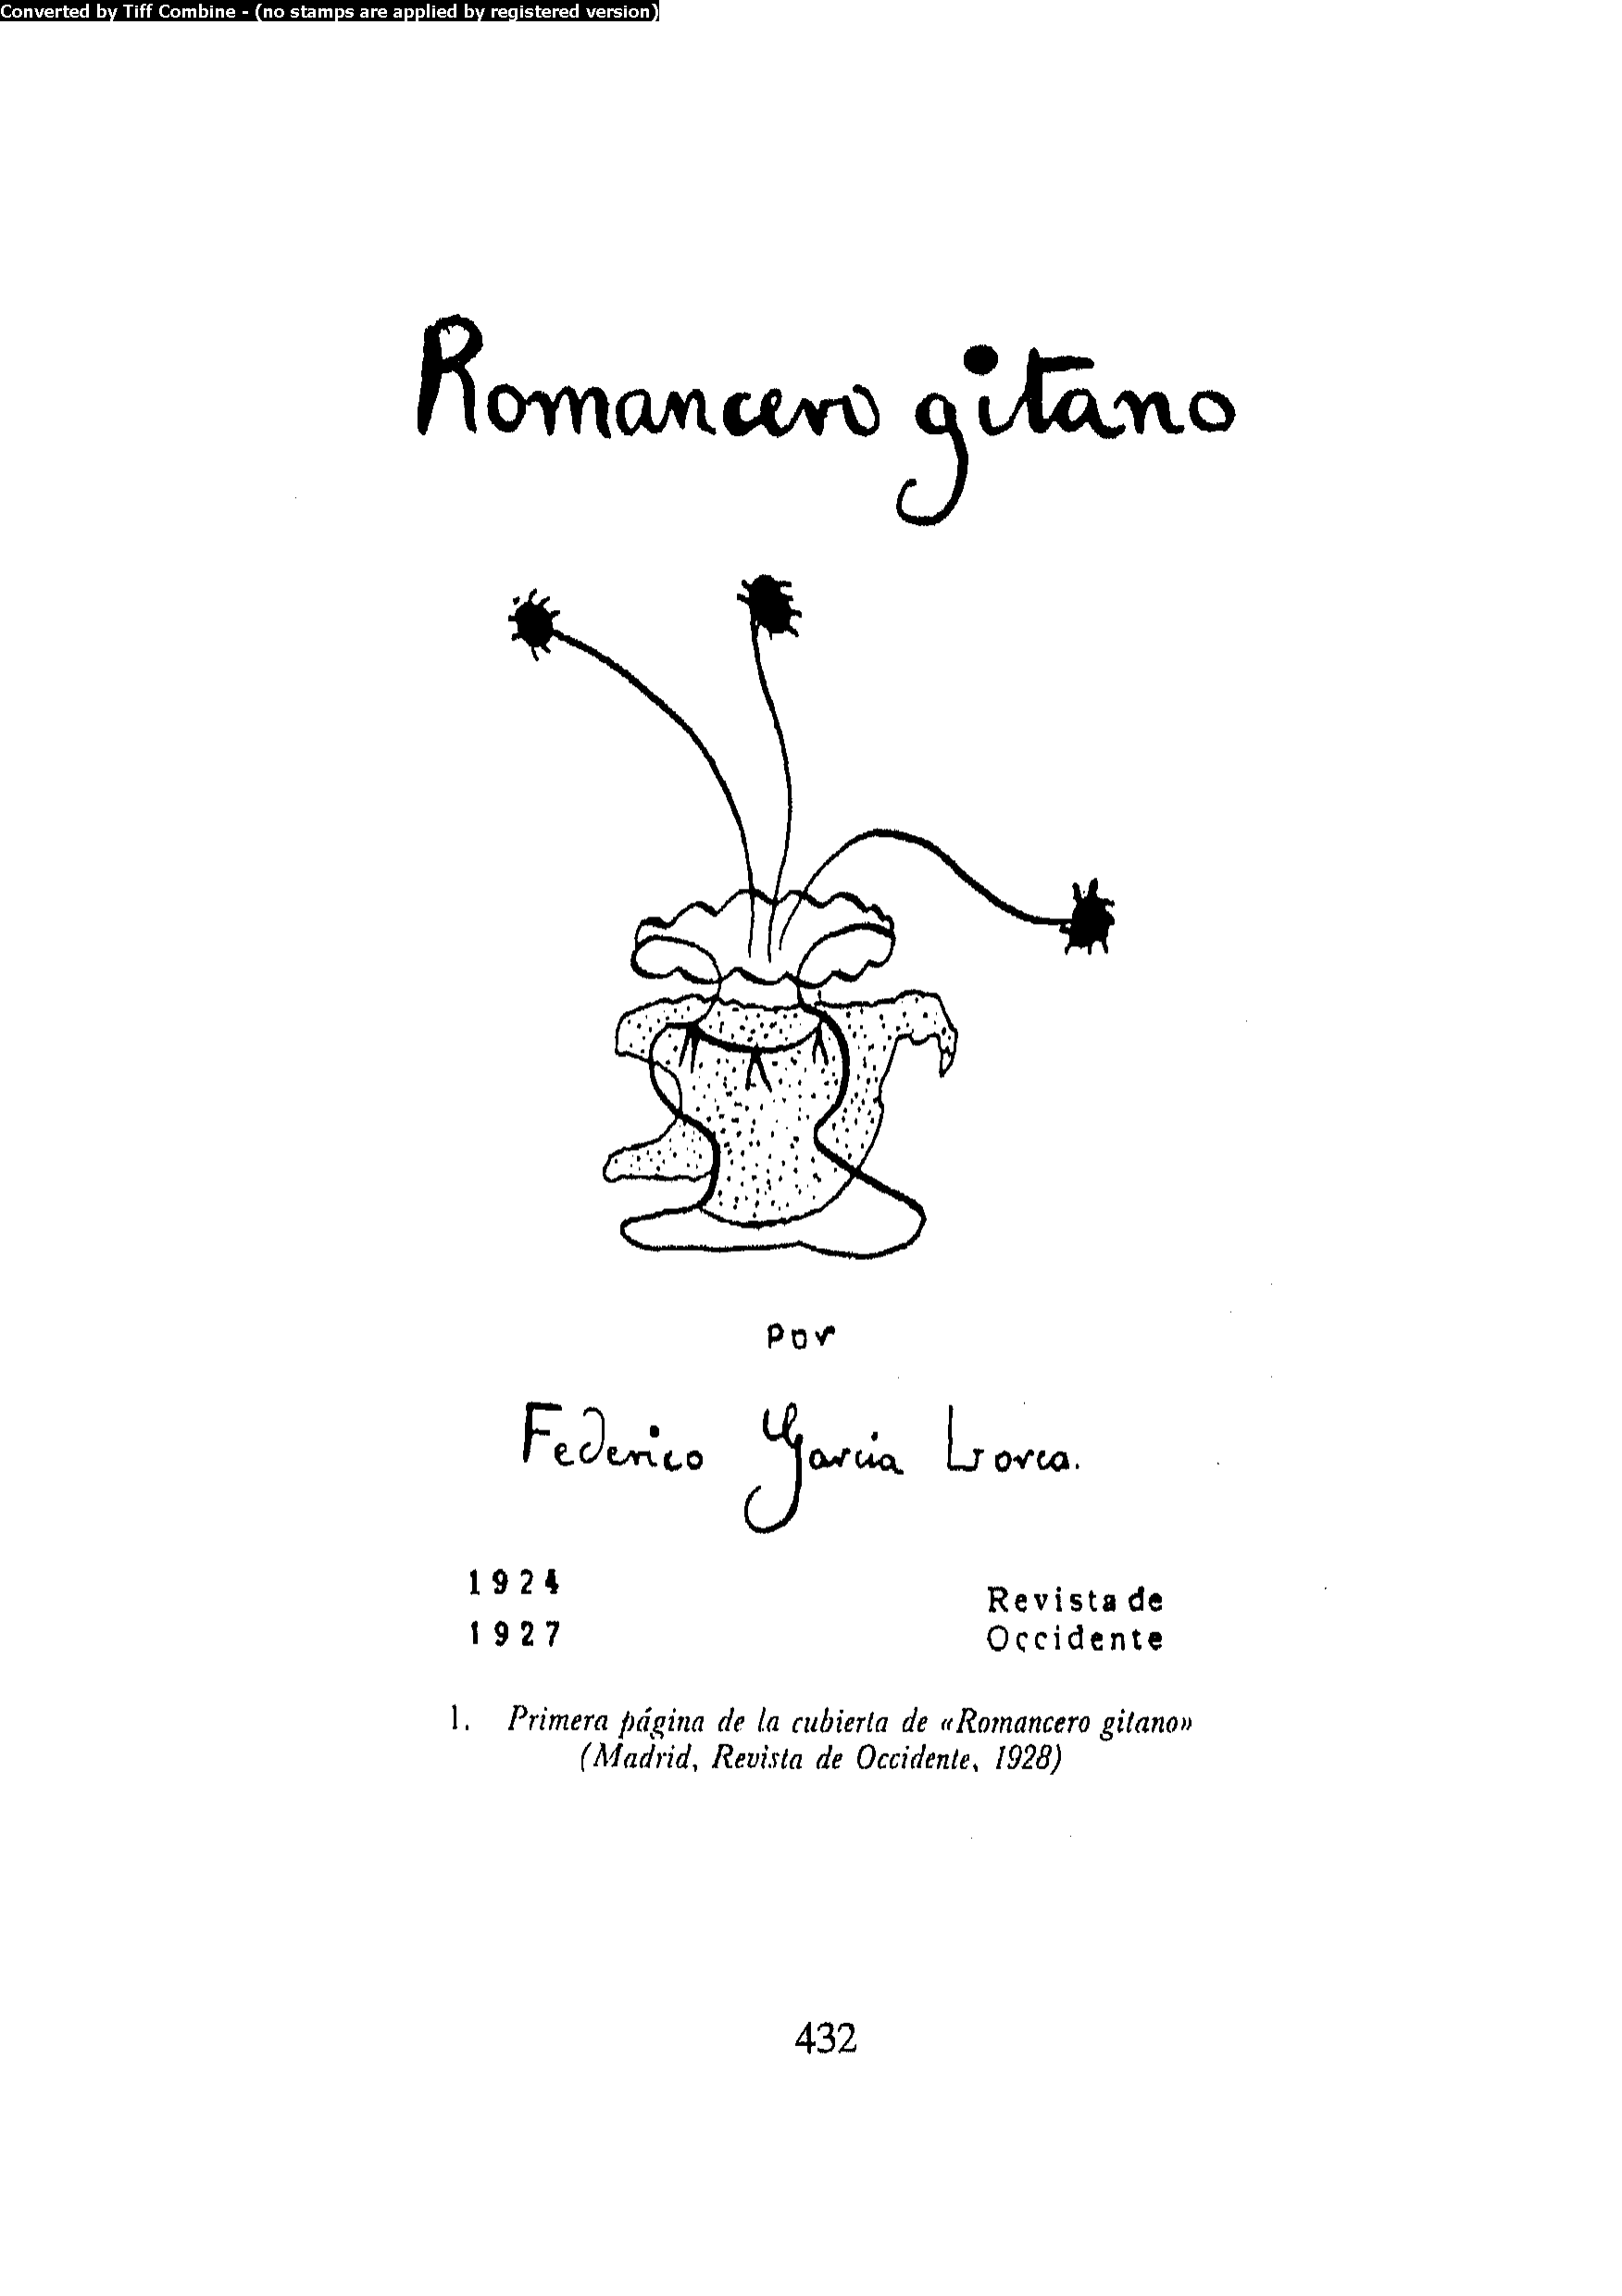 Converted by Tiff Combine - (no stamps are applied by registered version)
Romancero gitano
por
Federico García Lorca.
1924
1927
Revista de
Occidente
1. Primera página de la cubierta de «Romancero gitano»
(Madrid, Revista de Occidente, 1928)
432